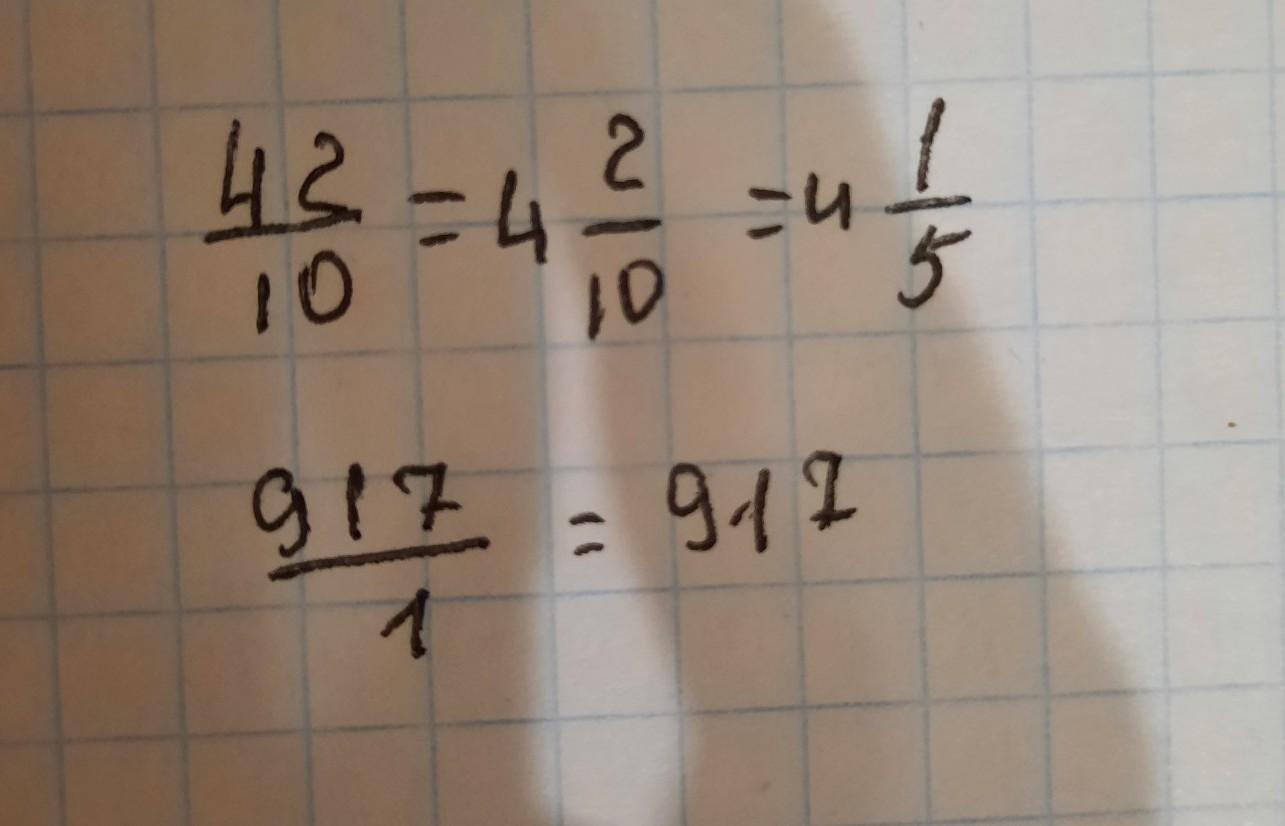 42/10 = 4 2/10 = 4 1/5
917/1 = 917